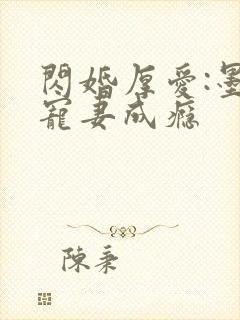 閃婚厚愛:墨
寵妻成瘾
陳秉